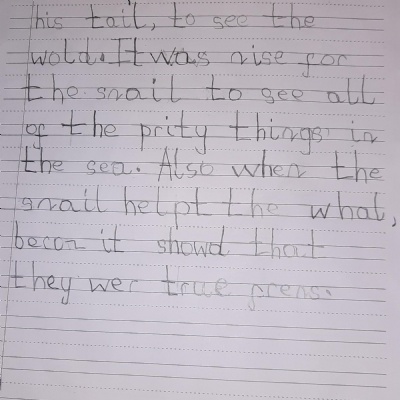 his tail, to see the
wold. It was nise for
the snail to see all
of the prity things in
the sea. Also when the
snail helpt the whal,
becon it showd that
they wer true frens.